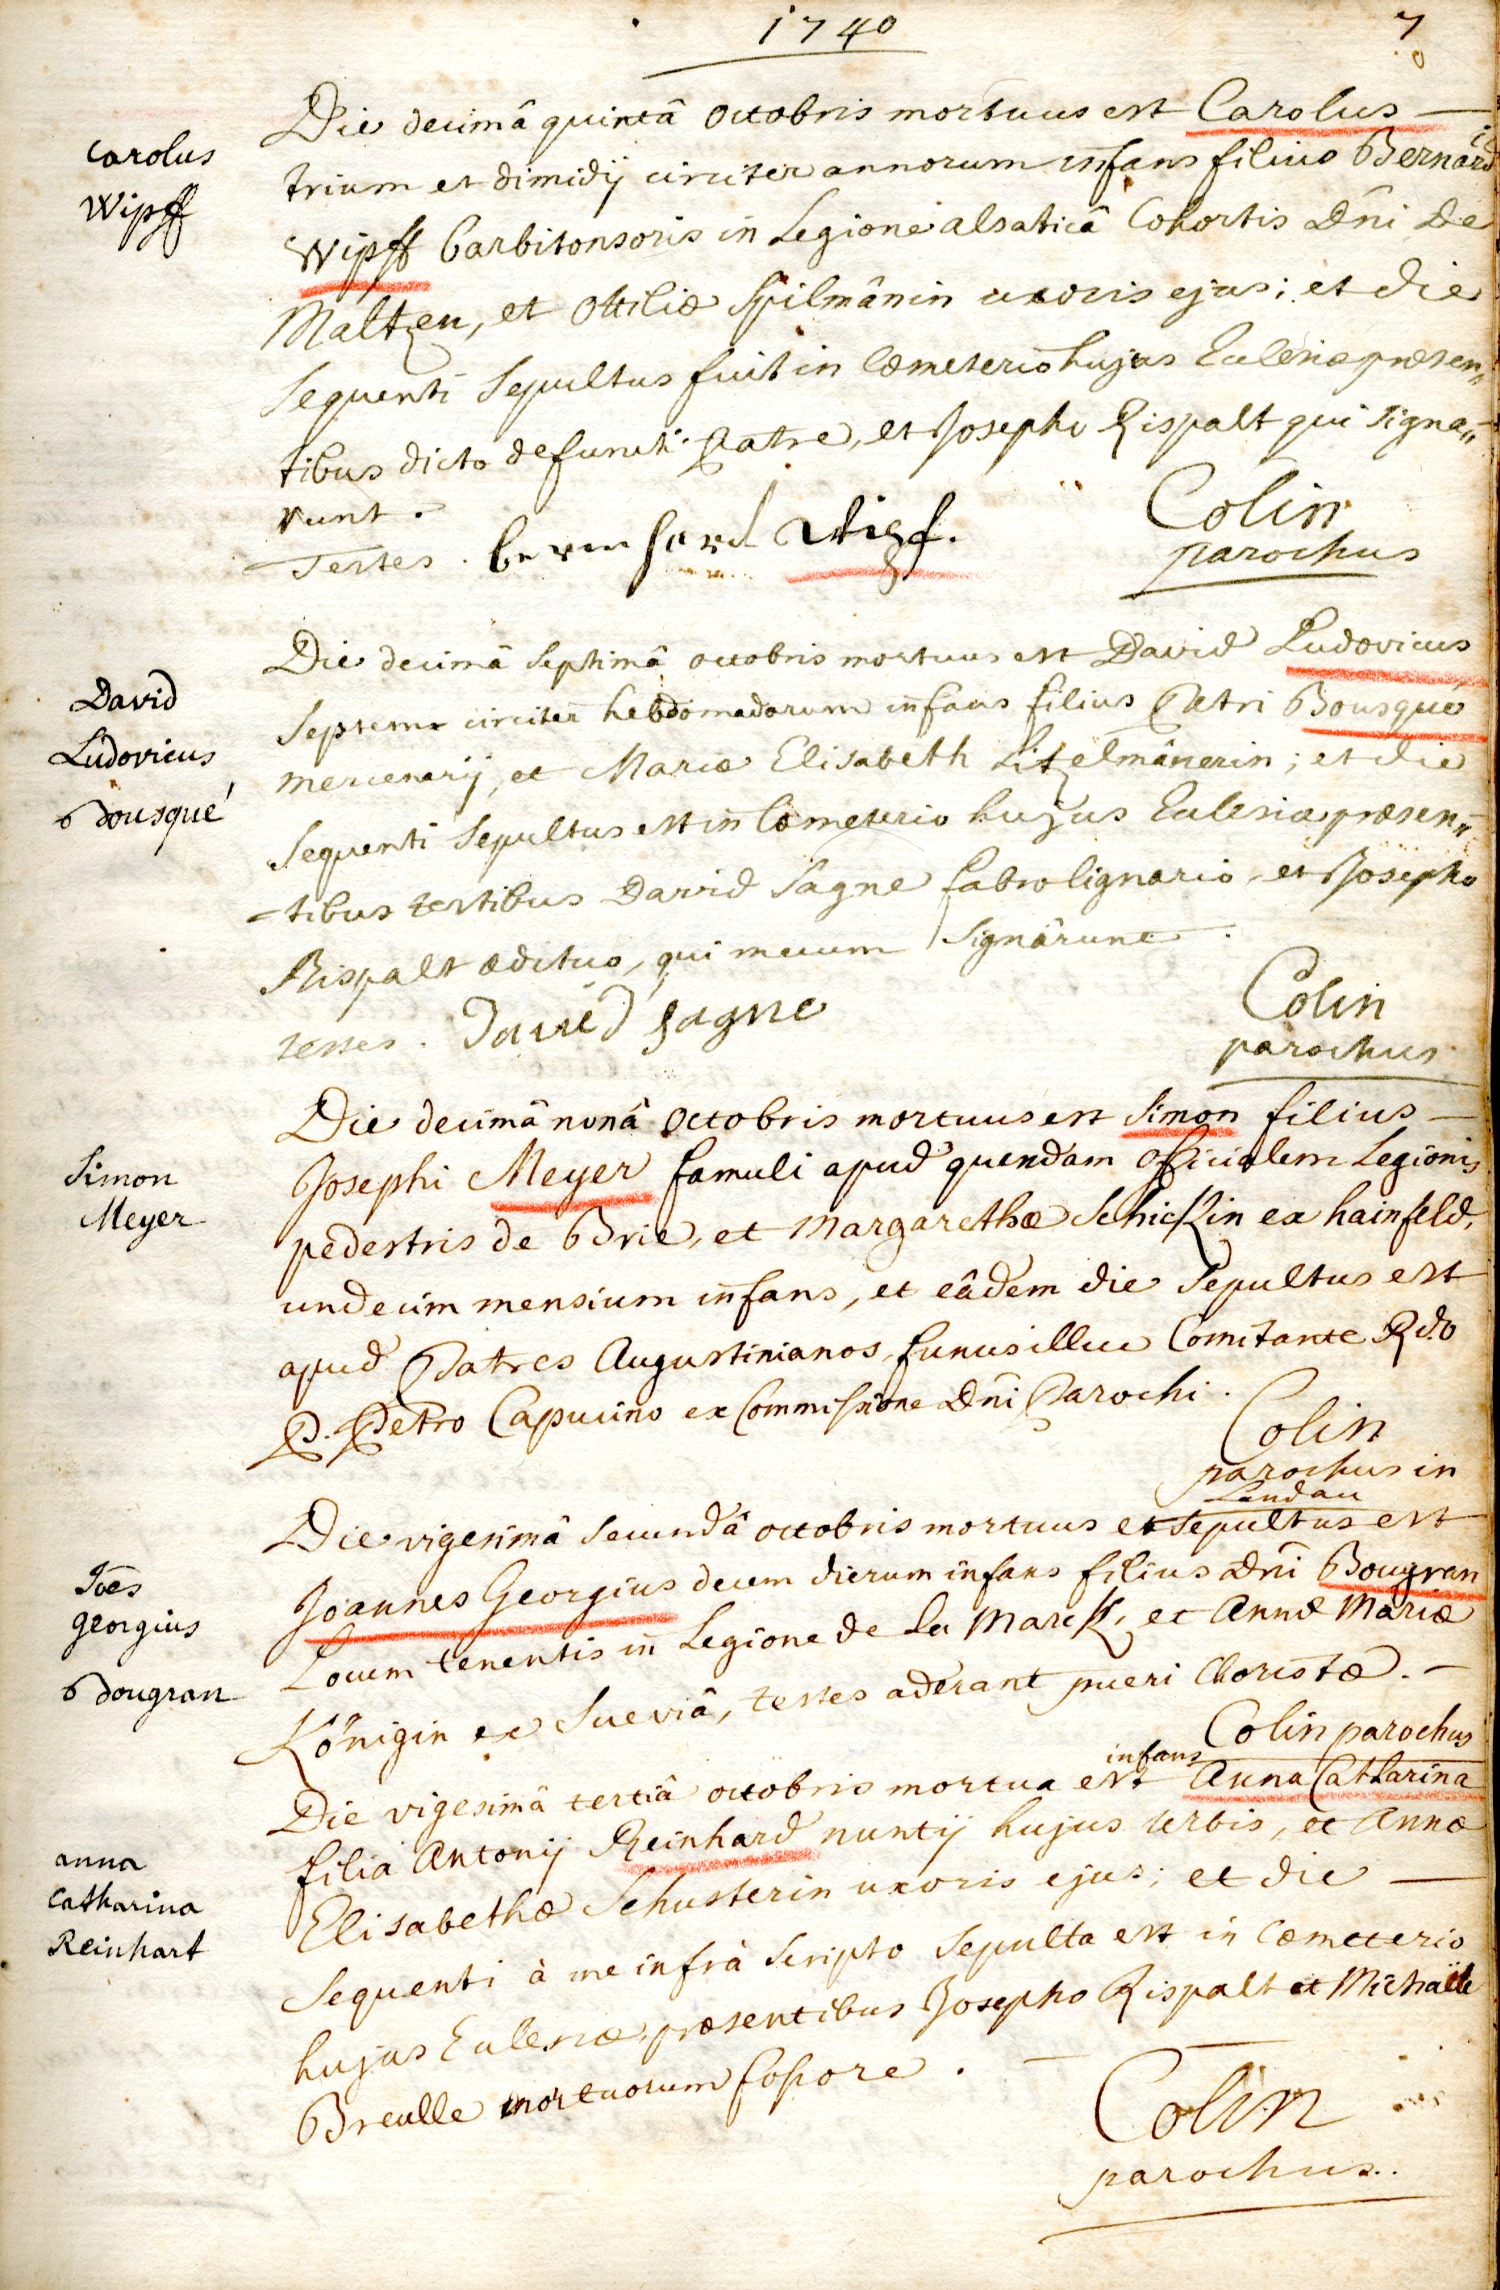 1740
7
Carolus
Wipff
Die decimâ quintâ octobris mortuus est Carolus —
trium et dimidij circiter annorum infans filius Bernardi
Wipff barbitonsoris in Legione alsaticâ Cohortis Dñi De
Maltzen, et Ottiliæ Spilmânin uxoris ejus; et die
sequenti sepultus fuit in Cœmeterio hujus Ecclesiæ præsen„
tibus dicto defuncti Patre, et Josepho Rispalt qui signa„
runt.
Testes. bernhard Wipf.
Colin
parochus
David
Ludovicus
Bousqué
Die decimâ septimâ octobris mortuus est David Ludovicus
septem circiter hebdomadarum infans filius Petri Bousqué
mercenarij, et Mariæ Elisabeth Litzelmânerin; et die
sequenti sepultus est in Cœmeterio hujus Ecclesiæ præsen„
-tibus testibus David Sagne fabro lignario, et Josepho
Rispalt ædituo, qui mecum signârunt.
testes. David sagne
Colin
parochus
Simon
Meyer
Die decimâ nonâ octobris mortuus est Simon filius —
Josephi Meyer famuli apud quendam officialem Legionis
pedestris de Brie, et Margarethæ Schickin ex hainfeld,
undecim mensium infans, et eâdem die sepultus est
apud Patres Augustinianos, funus illuc Comitante Rdo
P. Petro Capucino ex Commissione Dñi Parochi.
Colin
parochus in
Landau
Joês
georgius
Bougran
Die vigesimâ secundâ octobris mortuus et sepultus est
Joannes Georgius decem dierum infans filius Dñi Bougran
Locum tenentis in Legione de la Marck, et Annæ Mariæ
Königin ex Sueviâ, testes aderant pueri Choristæ. —
Colin parochus
anna
Catharina
Reinhart
infans
Die vigesimâ tertiâ octobris mortua est Anna Catharina
filia Antonij Reinhard nuntij hujus urbis, et Annæ
Elisabethæ Schusterin uxoris ejus; et die —
sequenti à me infrà scripto sepulta est in Cœmeterio
hujus Ecclesiæ, præsentibus Josepho Rispalt et Michaële
Breulle mortuorum fossore. —
Colin
parochus.